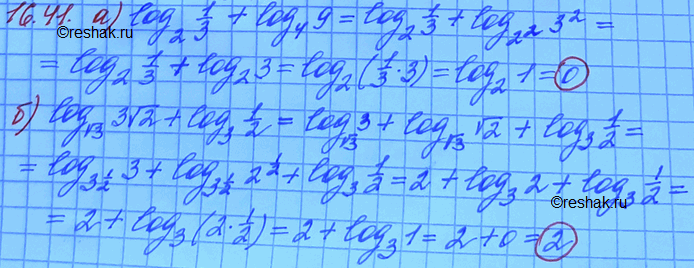 16.41. а) log₂ 1/3 + log₄ 9 = log₂ 1/3 + log₂² 3² =
= log₂ 1/3 + log₂ 3 = log₂ (1/3 · 3) = log₂ 1 = 0
б) log_√3 3√2 + log₃ 1/2 = log_√3 3 + log_√3 √2 + log₃ 1/2 =
= log_3^(1/2) 3 + log_3^(1/2) 2^(1/2) + log₃ 1/2 = 2 + log₃ 2 + log₃ 1/2 =
= 2 + log₃ (2 · 1/2) = 2 + log₃ 1 = 2 + 0 = 2
©Reshak.ru
©Reshak.ru
©Reshak.ru